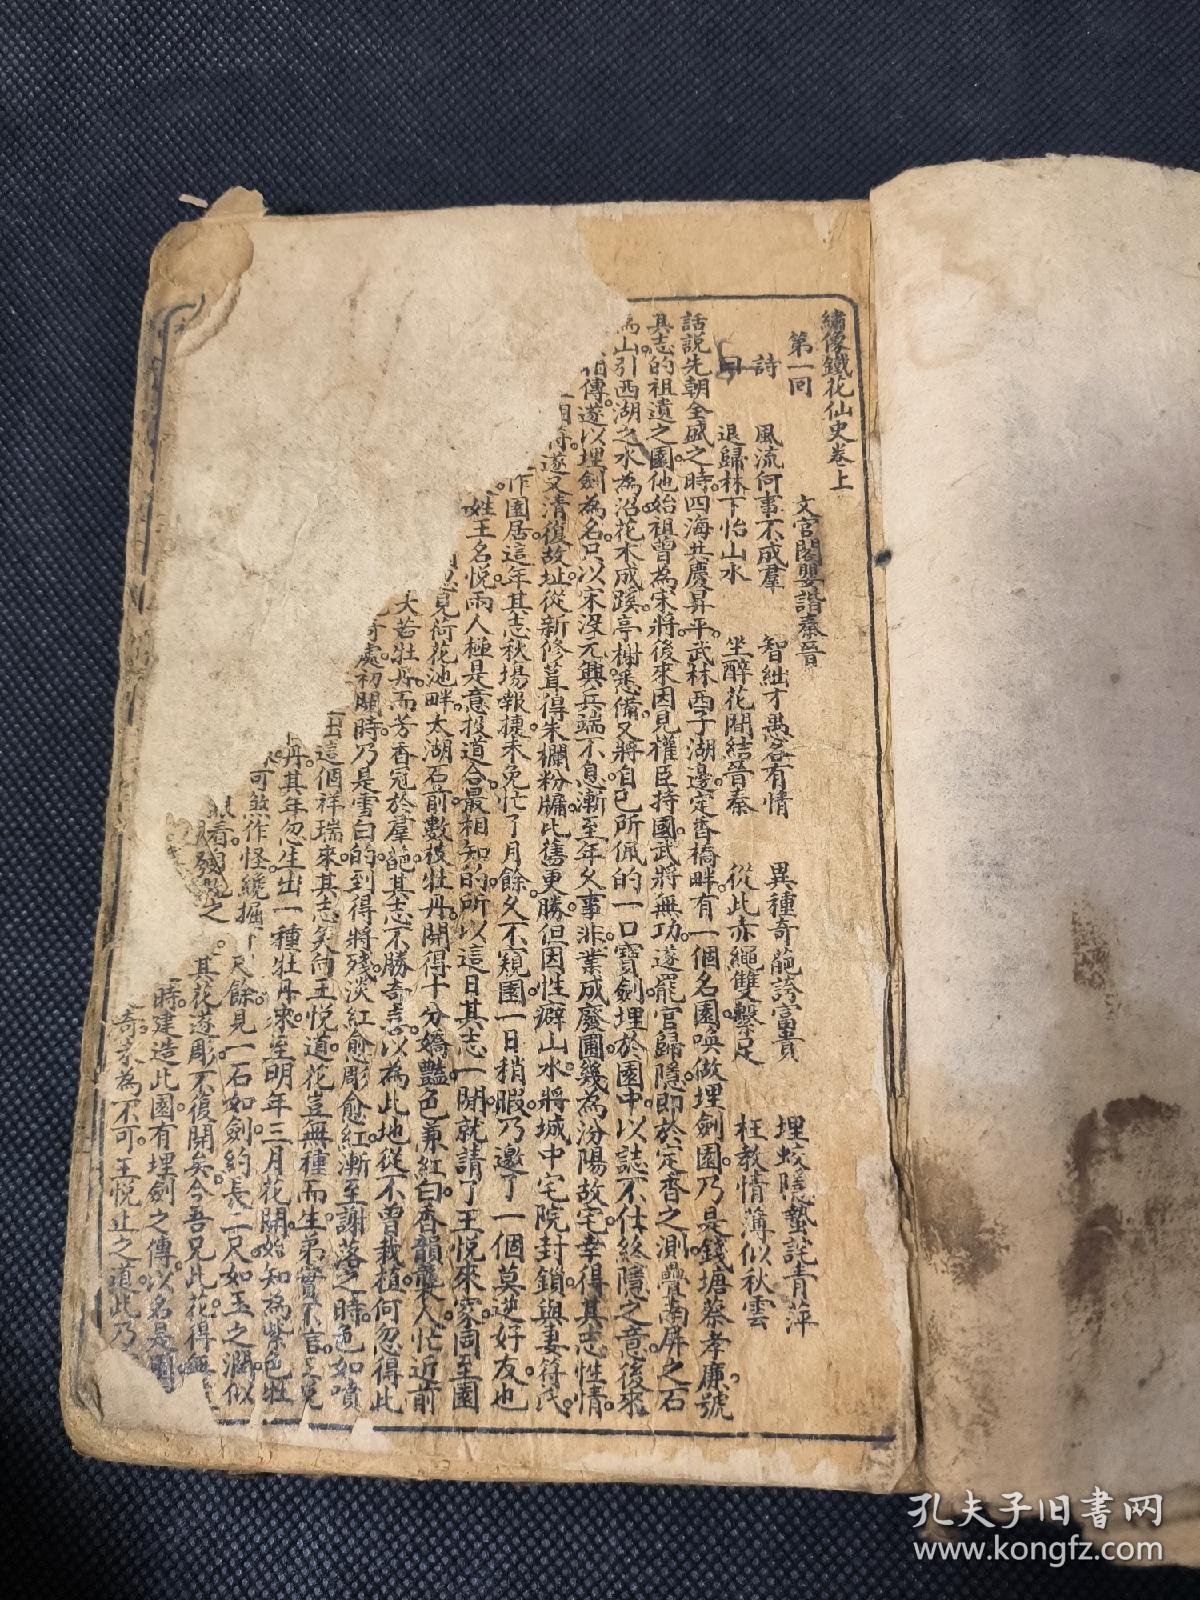 繡像鐵花仙史卷上
第一回　文官閣嬰諧秦晉
詩　風流何事不成羣　智絀才愚各有情　異種奇葩誇富貴　埋蛟隱蟄詫青萍
曰　退歸林下怡山水　坐醉花間結晉秦　從此赤繩雙繫足　枉教情薄似秋雲
話說先朝全盛之時。四海共慶昇平。武林西子湖邊。定香橋畔。有一個名園。喚做埋劍園。乃是錢塘蔡孝廉。號
其志的祖遺之園。他始祖曾為宋將。後來因見權臣持國。武將無功。遂罷官歸隱。即於定香之測。疊南屏之石
為山。引西湖之水為沼。花木成蹊。亭榭悉備。又將自已所佩的一口寶劍。埋於園中。以誌不仕終隱之意。後來
相傳。遂以埋劍為名。只以宋沒元興。兵端不息。漸至年久事非。業成廢圃。幾為汾陽故宅。幸得其志性情
遂又清復故址。從新修葺。得朱欄粉牖。比舊更勝。但因性癖山水。將城中宅院封鎖。與妻符氏。
作園居。這年其志秋場報捷。未免忙了月餘。久不窺園。一日稍暇。乃邀了一個莫逆好友。也
姓王名悅。兩人極是意投道合。最相知的。所以這日其志一閒。就請了王悅來家。同至園
見荷花池畔。太湖石前。數枝牡丹。開得十分嬌豔。色兼紅白。香韻襲人。忙近前
大若牡丹。而芳香冠於羣葩。其志不勝奇志。以為此地從不曾栽植。何忽得此
奇處。初開時。乃是雪白的。到得將殘。淡紅愈彫愈紅。漸至謝落之時。色如噴
出這個祥瑞來。其志笑向王悅道。花豈無種而生。弟實不言。
丹。其年忽生出一種牡丹來。至明年三月花開。始知為紫色牡
可煞作怪。纔掘下尺餘。見一石如劍。約長一尺。如玉之潤。似
看殘毀之。其花遂彫。不復開矣。今吾兄此花。得無
時。建造此園。有埋劍之傳。以名是園
奇。未為不可。王悅止之道。此乃
孔夫子旧書网
www.kongfz.com